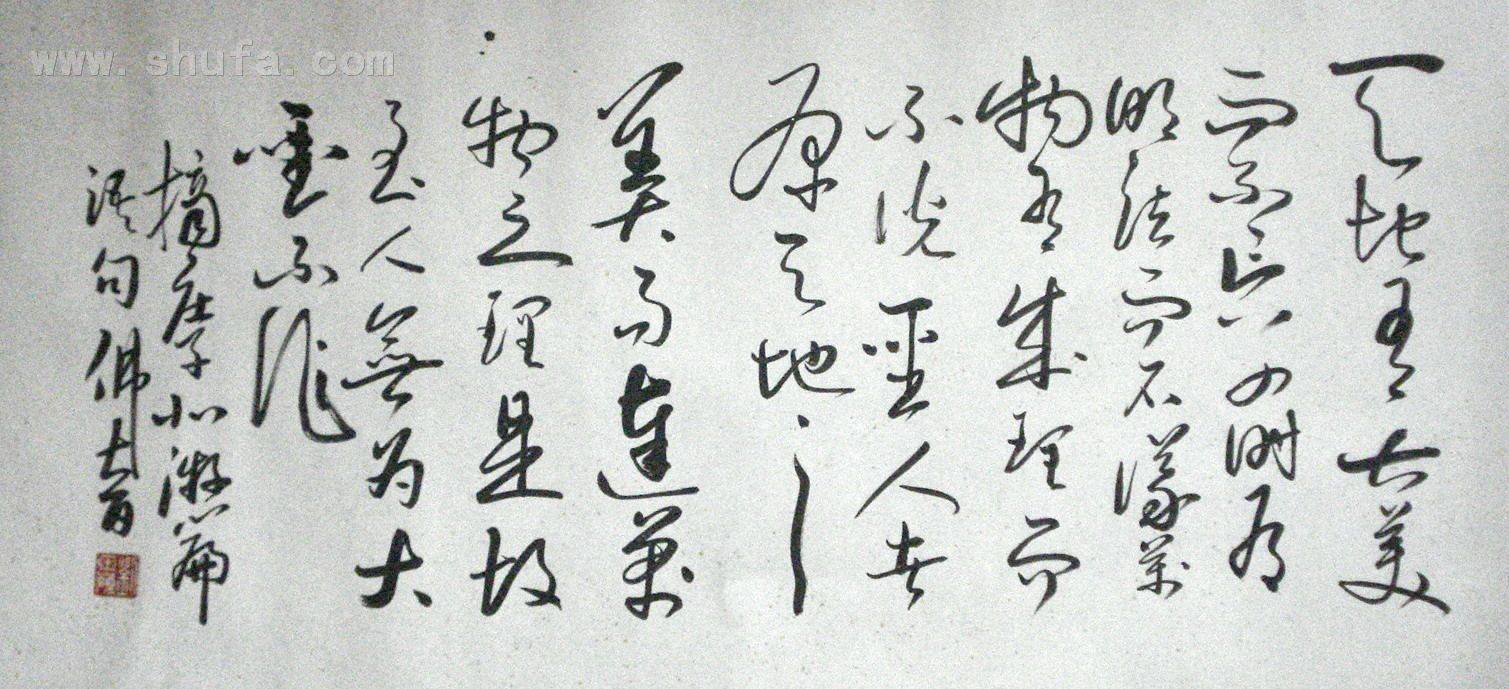 天地有大美
而不言四时有
明法而不議萬
物有成理而
不说聖人者
原天地之
美而達萬
物之理是故
至人無为大
聖不作
摘庄子北游篇
语句
www.shufa.com